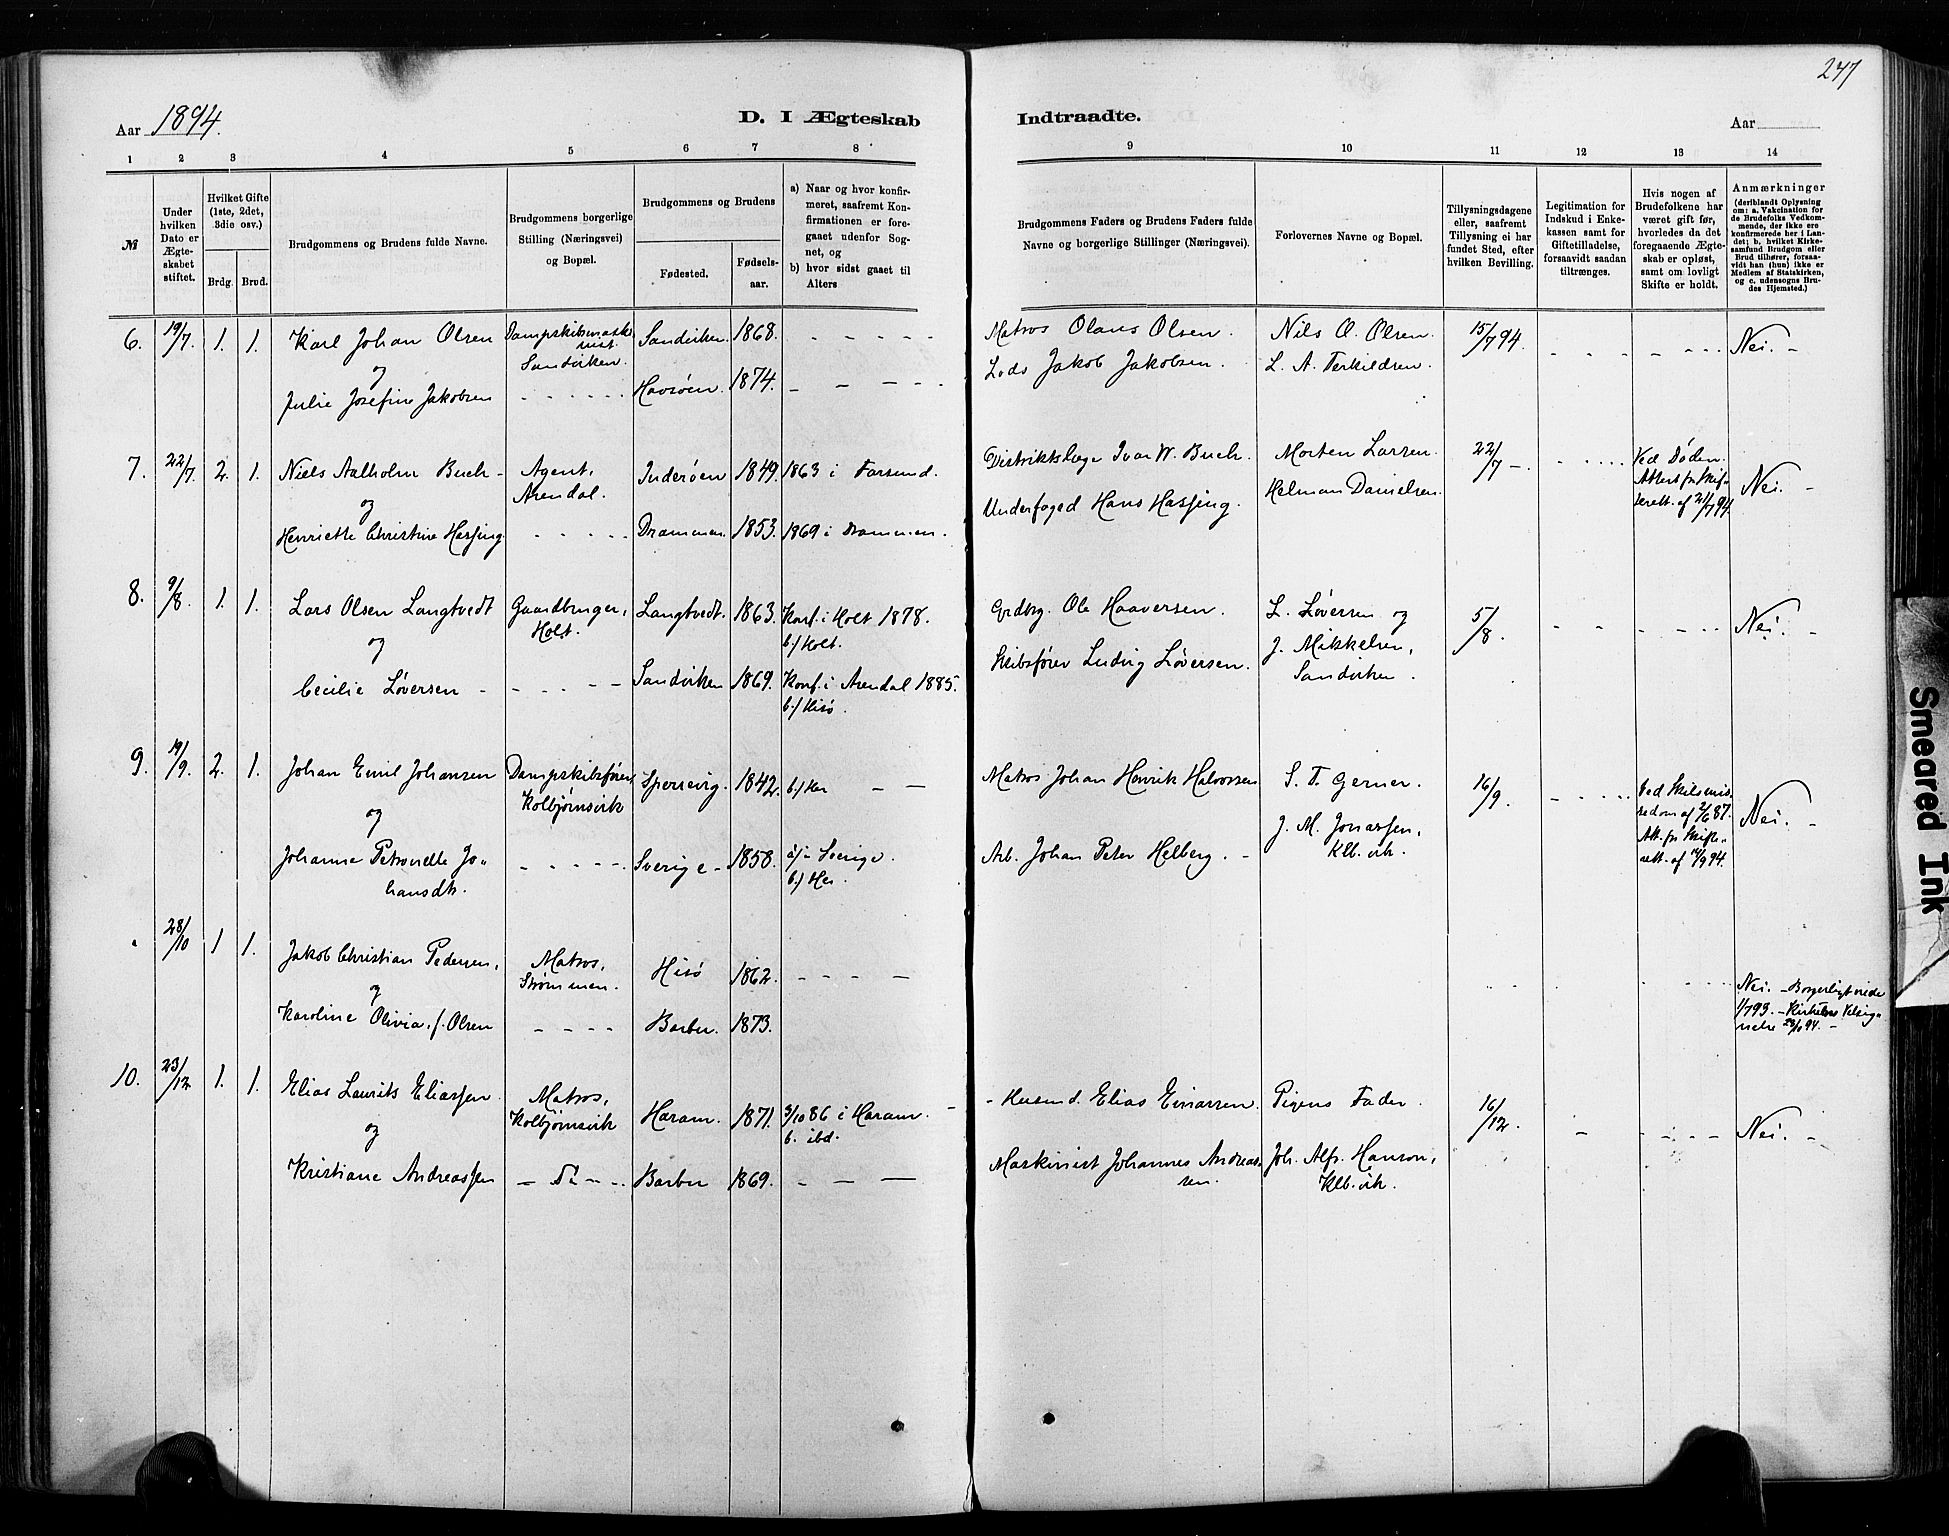 247
Aar 1894.
D. I Ægteskab Indtraadte.
Aar
1 2 3 4 5 6 7 8 9 10 11 12 13 14
№
Under hvilken Dato er Ægteskabet stiftet.
Hvilket Gifte (1ste, 2det, 3die osv.)
Brdg. Brud.
Brudgommens og Brudens fulde Navne.
Brudgommens borgerlige Stilling (Næringsvei) og Bopæl.
Brudgommens og Brudens
Fødested.
Fødselsaar.
a) Naar og hvor konfirmeret, saafremt Konfirmationen er foregaaet udenfor Sognet, og
b) hvor sidst gaaet til Alters
Brudgommens Faders og Brudens Faders fulde Navne og borgerlige Stillinger (Næringsvei).
Forlovernes Navne og Bopæl.
Tillysningsdagene eller, saafremt Tillysning ei har fundet Sted, efter hvilken Bevilling.
Legitimation for Indskud i Enkekassen samt for Giftetilladelse, forsaavidt saadan tiltrænges.
Hvis nogen af Brudefolkene har været gift før, hvorledes da det foregaaende Ægteskab er opløst, samt om lovligt Skifte er holdt.
Anmærkninger (deriblandt Oplysning om: a. Vakcination for de Brudefolks Vedkommende, der ikke ere konfirmerede her i Landet; b. hvilket Kirkesamfund Brudgom eller Brud tilhører, forsaavidt han (hun) ikke er Medlem af Statskirken, og c. udensogns Brudes Hjemsted.)
6. 19/7. 1. 1. Karl Johan Olsen Dampskibsmaskinist Sandviken. Sandviken. 1868. - - - - - Matros Olaus Olsen. Nils O. Olsen. 15/7 94. - - - - - - - Nei. -
og
Julie Josefine Jakobsen - - - - - - Havsøen. 1874. - - - - Lods Jakob Jakobsen. L. A. Terkildsen.
7. 22/7. 2. 1. Niels Aalholm Buch - Agent, Arendal. Inderøen 1849. 1863 i Farsund. Distriktslæge Ivar W. Buch. Morten Larsen. 22/7 - - - - - - Ved Døden. Attest fra Skifterett. af 21/7 94. Nei. -
og
Henriette Christine Hassing. - - - - - Drammen. 1853. 1869 i Drammen. Underfoged Hans Hassing. Helman Danielsen.
8. 9/8. 1. 1. Lars Olsen Langtvedt Gaardbruger, Holt. Langtvedt. 1863. Konf. i Holt 1878. b./ Holt. Grdbrg. Ole Haaversen. L. Løversen og 5/8. - - - - - - Nei. -
og
Cecilie Løversen - - - - - - Sandviken 1869. Konf. i Arendal 1885. b./ Hisø. Skibsfører Ludvig Løversen. J. Mikkelsen, Sandviken.
9. 19/9. 2. 1. Johan Emil Johansen Dampskibsfører, Kolbjørnsvik Sperrevig. 1842. b./ Her - - Matros Johan Henrik Halvorsen S. T. Gerner. 16/9. - - - - - Ved Skilsmissedom af 2/6 87. Att. fr. Skifterett. af 14/9 94. Nei. -
og
Johanne Petronelle Johansdtr. - - - - - Sverige - 1858. a/ i Sverige. b./ Her. Arb. Johan Peter Helberg. - J. M. Jonassen, Klb.vik.
" 28/10 1 1. Jakob Christian Pedersen, Matros, Strømmen. Hisø 1862. - - - - - - - - - - Nei. - Borgerligt viede 1/7 93. - Kirkelig Velsignelse 28/10 94. -
og
Karoline Olivia, f. Olsen - - - - Barbu. 1873.
10. 23/12 1. 1. Elias Laurits Eliassen Matros, Kolbjørnsvik Haram. 1871. 3/10 86 i Haram. - b. ibd. - Husmd. Elias Einarsen. Pigens Fader. 16/12. - - - - - Nei. -
og
Kristiane Andreassen - Do - - Barbu 1869. - - - Maskinist Johannes Andreassen. Joh. Alfr. Hanson, Klb.vik.
Smeared Ink